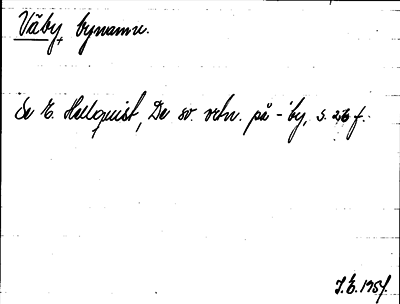 Väby, bynamn.
Se E. Hellquist, De sv. ortn. på -by, s. 26 f.
J.E. 1957.